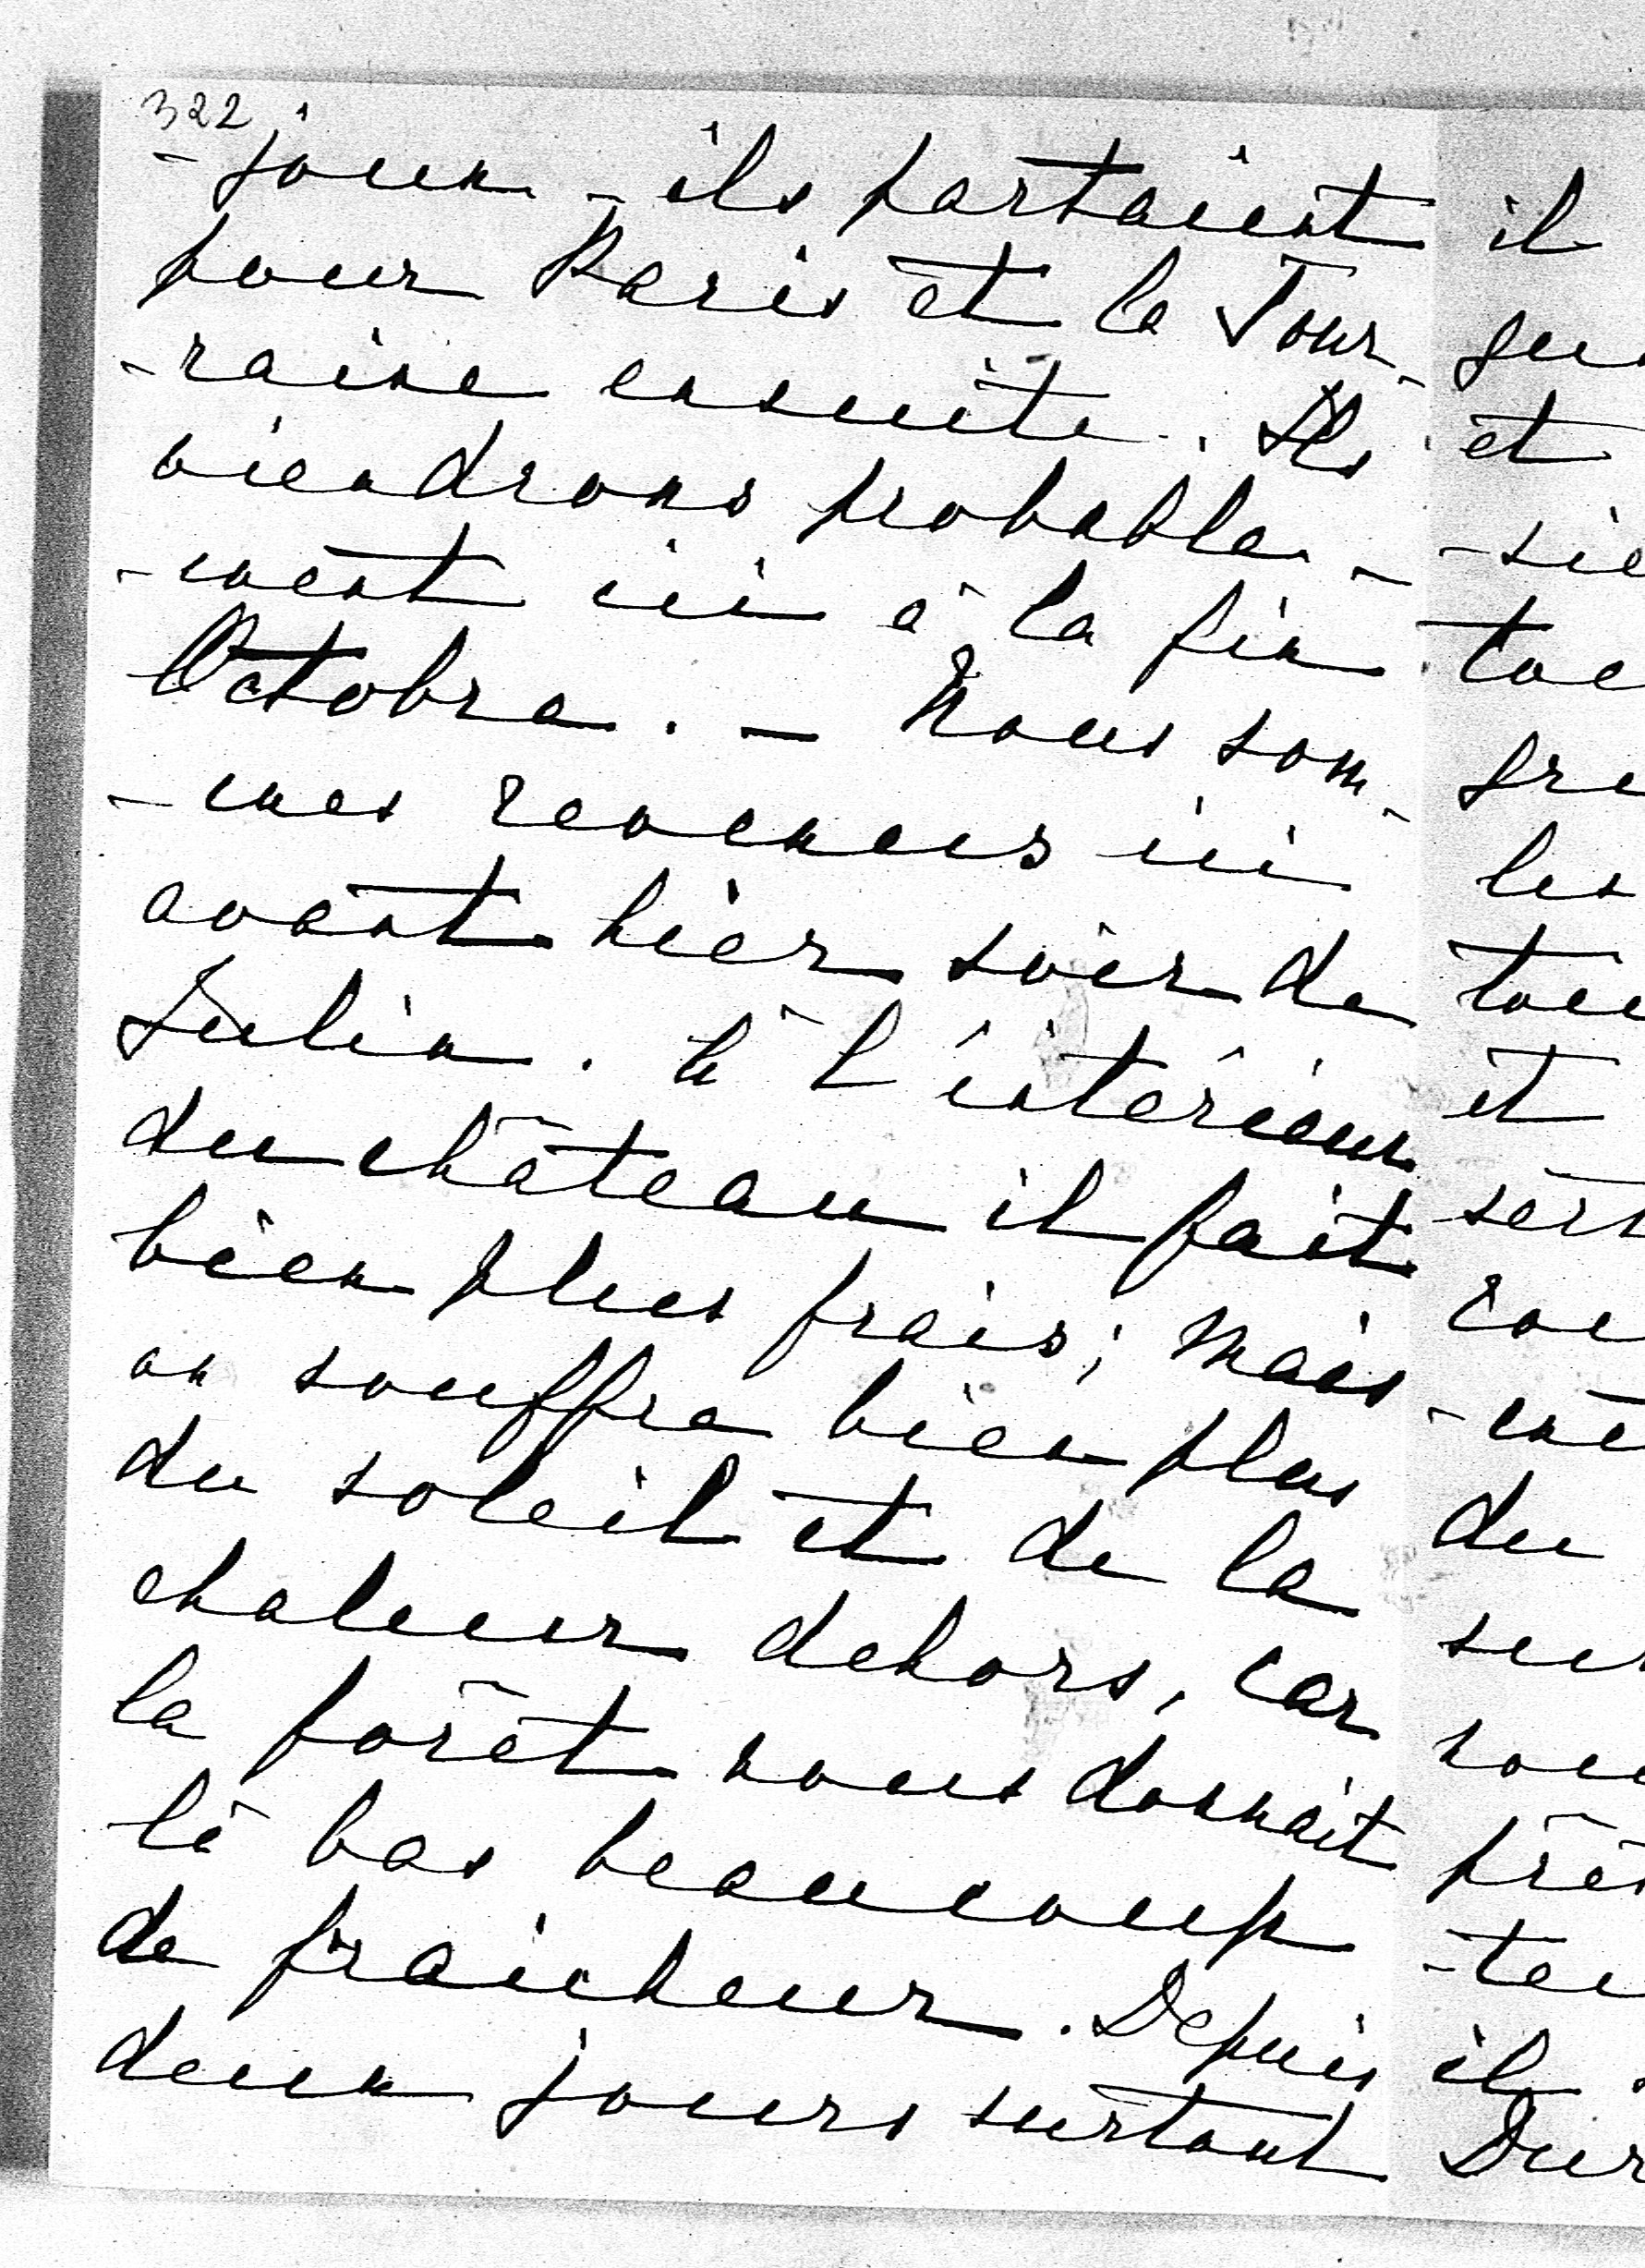 322
- jour - ils partaient
pour Paris et la Tour-
-raine ensuite. Ils
viendrons probable-
-ment ici à la fin
Octobre. - Nous som-
-mes revenus ici
avant hier soir de
Sulin. à l'intérieur
du château il fait
bien plus frais; mais
on souffre bien plus
du soleil et de la
chaleur dehors, car
la forêt nous donnait
là bas beaucoup
de fraicheur. Depuis
deux jours surtout
il
et
les
et
du
il